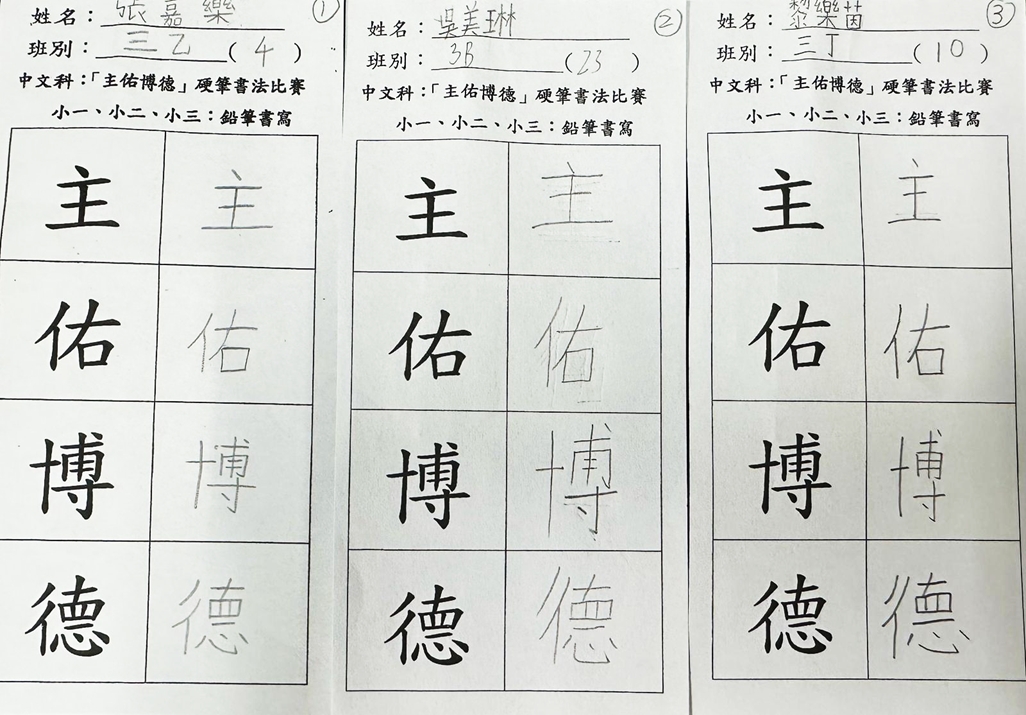 ①
姓名：張嘉樂
班別：三乙(4)
中文科：「主佑博德」硬筆書法比賽
小一、小二、小三：鉛筆書寫
主 主
佑 佑
博 博
德 德
②
姓名：吳美琳
班別：3B(23)
中文科：「主佑博德」硬筆書法比賽
小一、小二、小三：鉛筆書寫
主 主
佑 佑
博 博
德 德
③
姓名：黎樂茵
班別：三丁(10)
中文科：「主佑博德」硬筆書法比賽
小一、小二、小三：鉛筆書寫
主 主
佑 佑
博 博
德 德